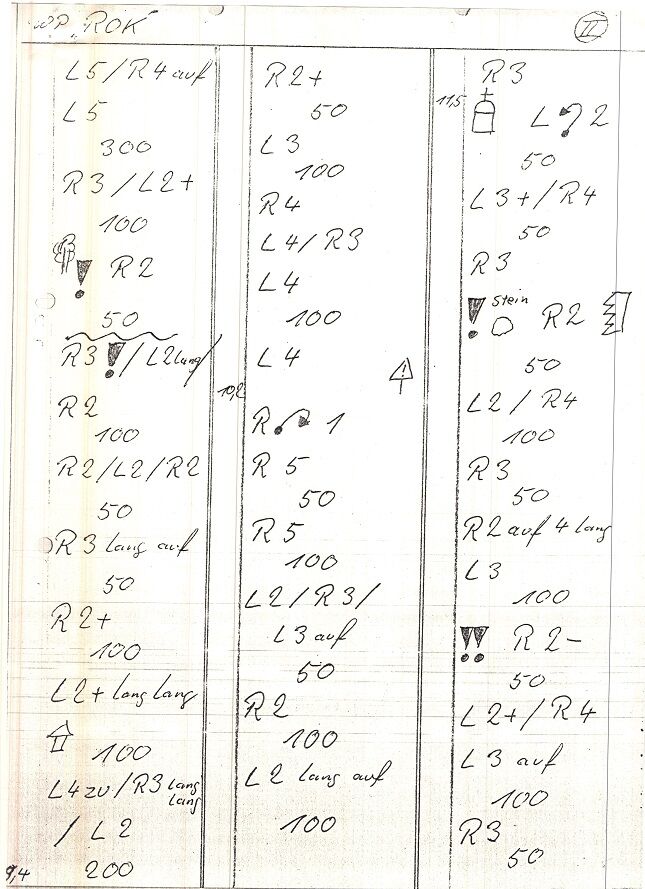 WP "ROK" II
L5/R4 auf
L5
300
R3/L2+
100
! R2
50
R3 !/L2 lang/
R2
100
R2/L2/R2
50
R3 lang auf
50
R2+
100
L2+ lang lang
100
L4 zu/R3 lang
lang
/L2
200
9,4
R2+
50
L3
100
R4
L4/R3
L4
100
L4
!
10,2
R 1
R5
50
R5
100
L2/R3/
L3 auf
50
R2
100
L2 lang auf
100
R3
11,5
L 2
50
L3+/R4
50
R3
! Stein R2
50
L2/R4
100
R3
50
R2 auf 4 lang
L3
100
!! R2-
50
L2+/R4
L3 auf
100
R3
50